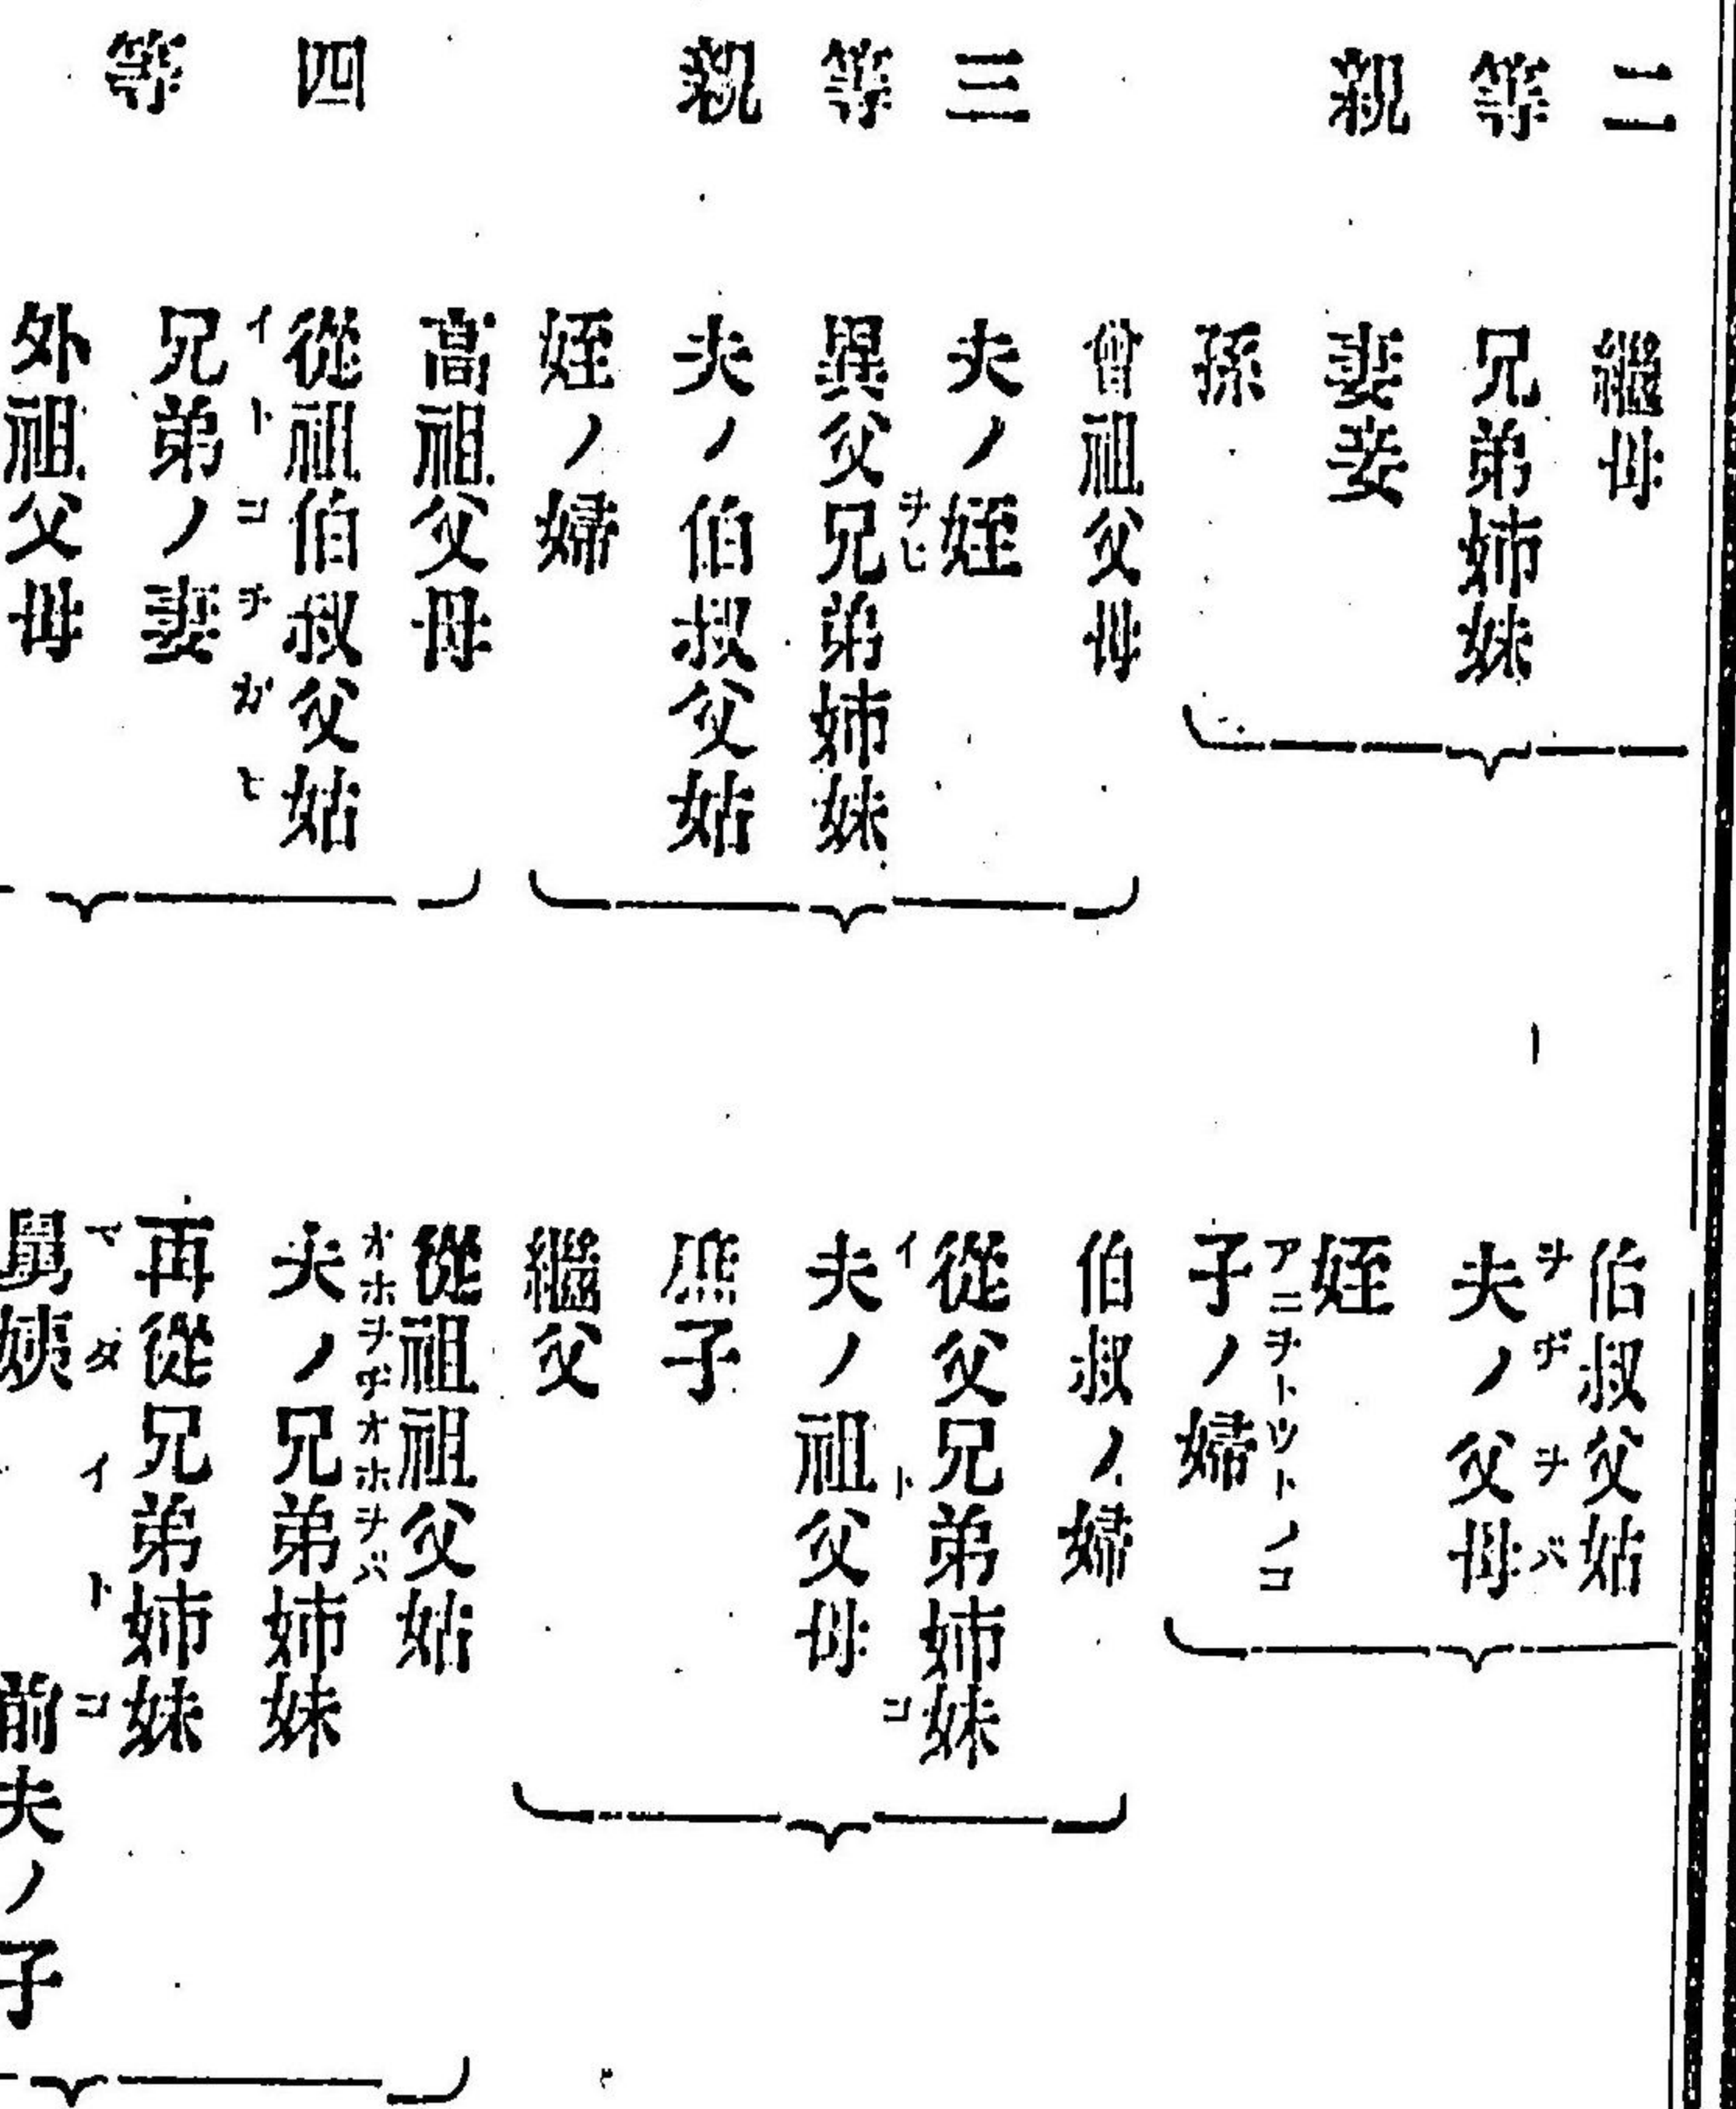 二等親
繼母
兄弟姉妹
妻妾
孫
伯叔父姑
ヲヂヲバ
夫ノ父母
姪
アニヲトツトノコ
子ノ婦
三等親
曾祖父母
夫ノ姪
ヲヒ
異父兄弟姉妹
夫ノ伯叔父姑
姪ノ婦
伯叔ノ婦
從父兄弟姉妹
イトコ
夫ノ祖父母
庶子
繼父
四等
高祖父母
從祖伯叔父姑
イトコチガヒ
兄弟ノ妻
外祖父母
從祖祖父姑
オホヲヂオホヲバ
夫ノ兄弟姉妹
再從兄弟姉妹
マタイトコ
舅姨 前夫ノ子